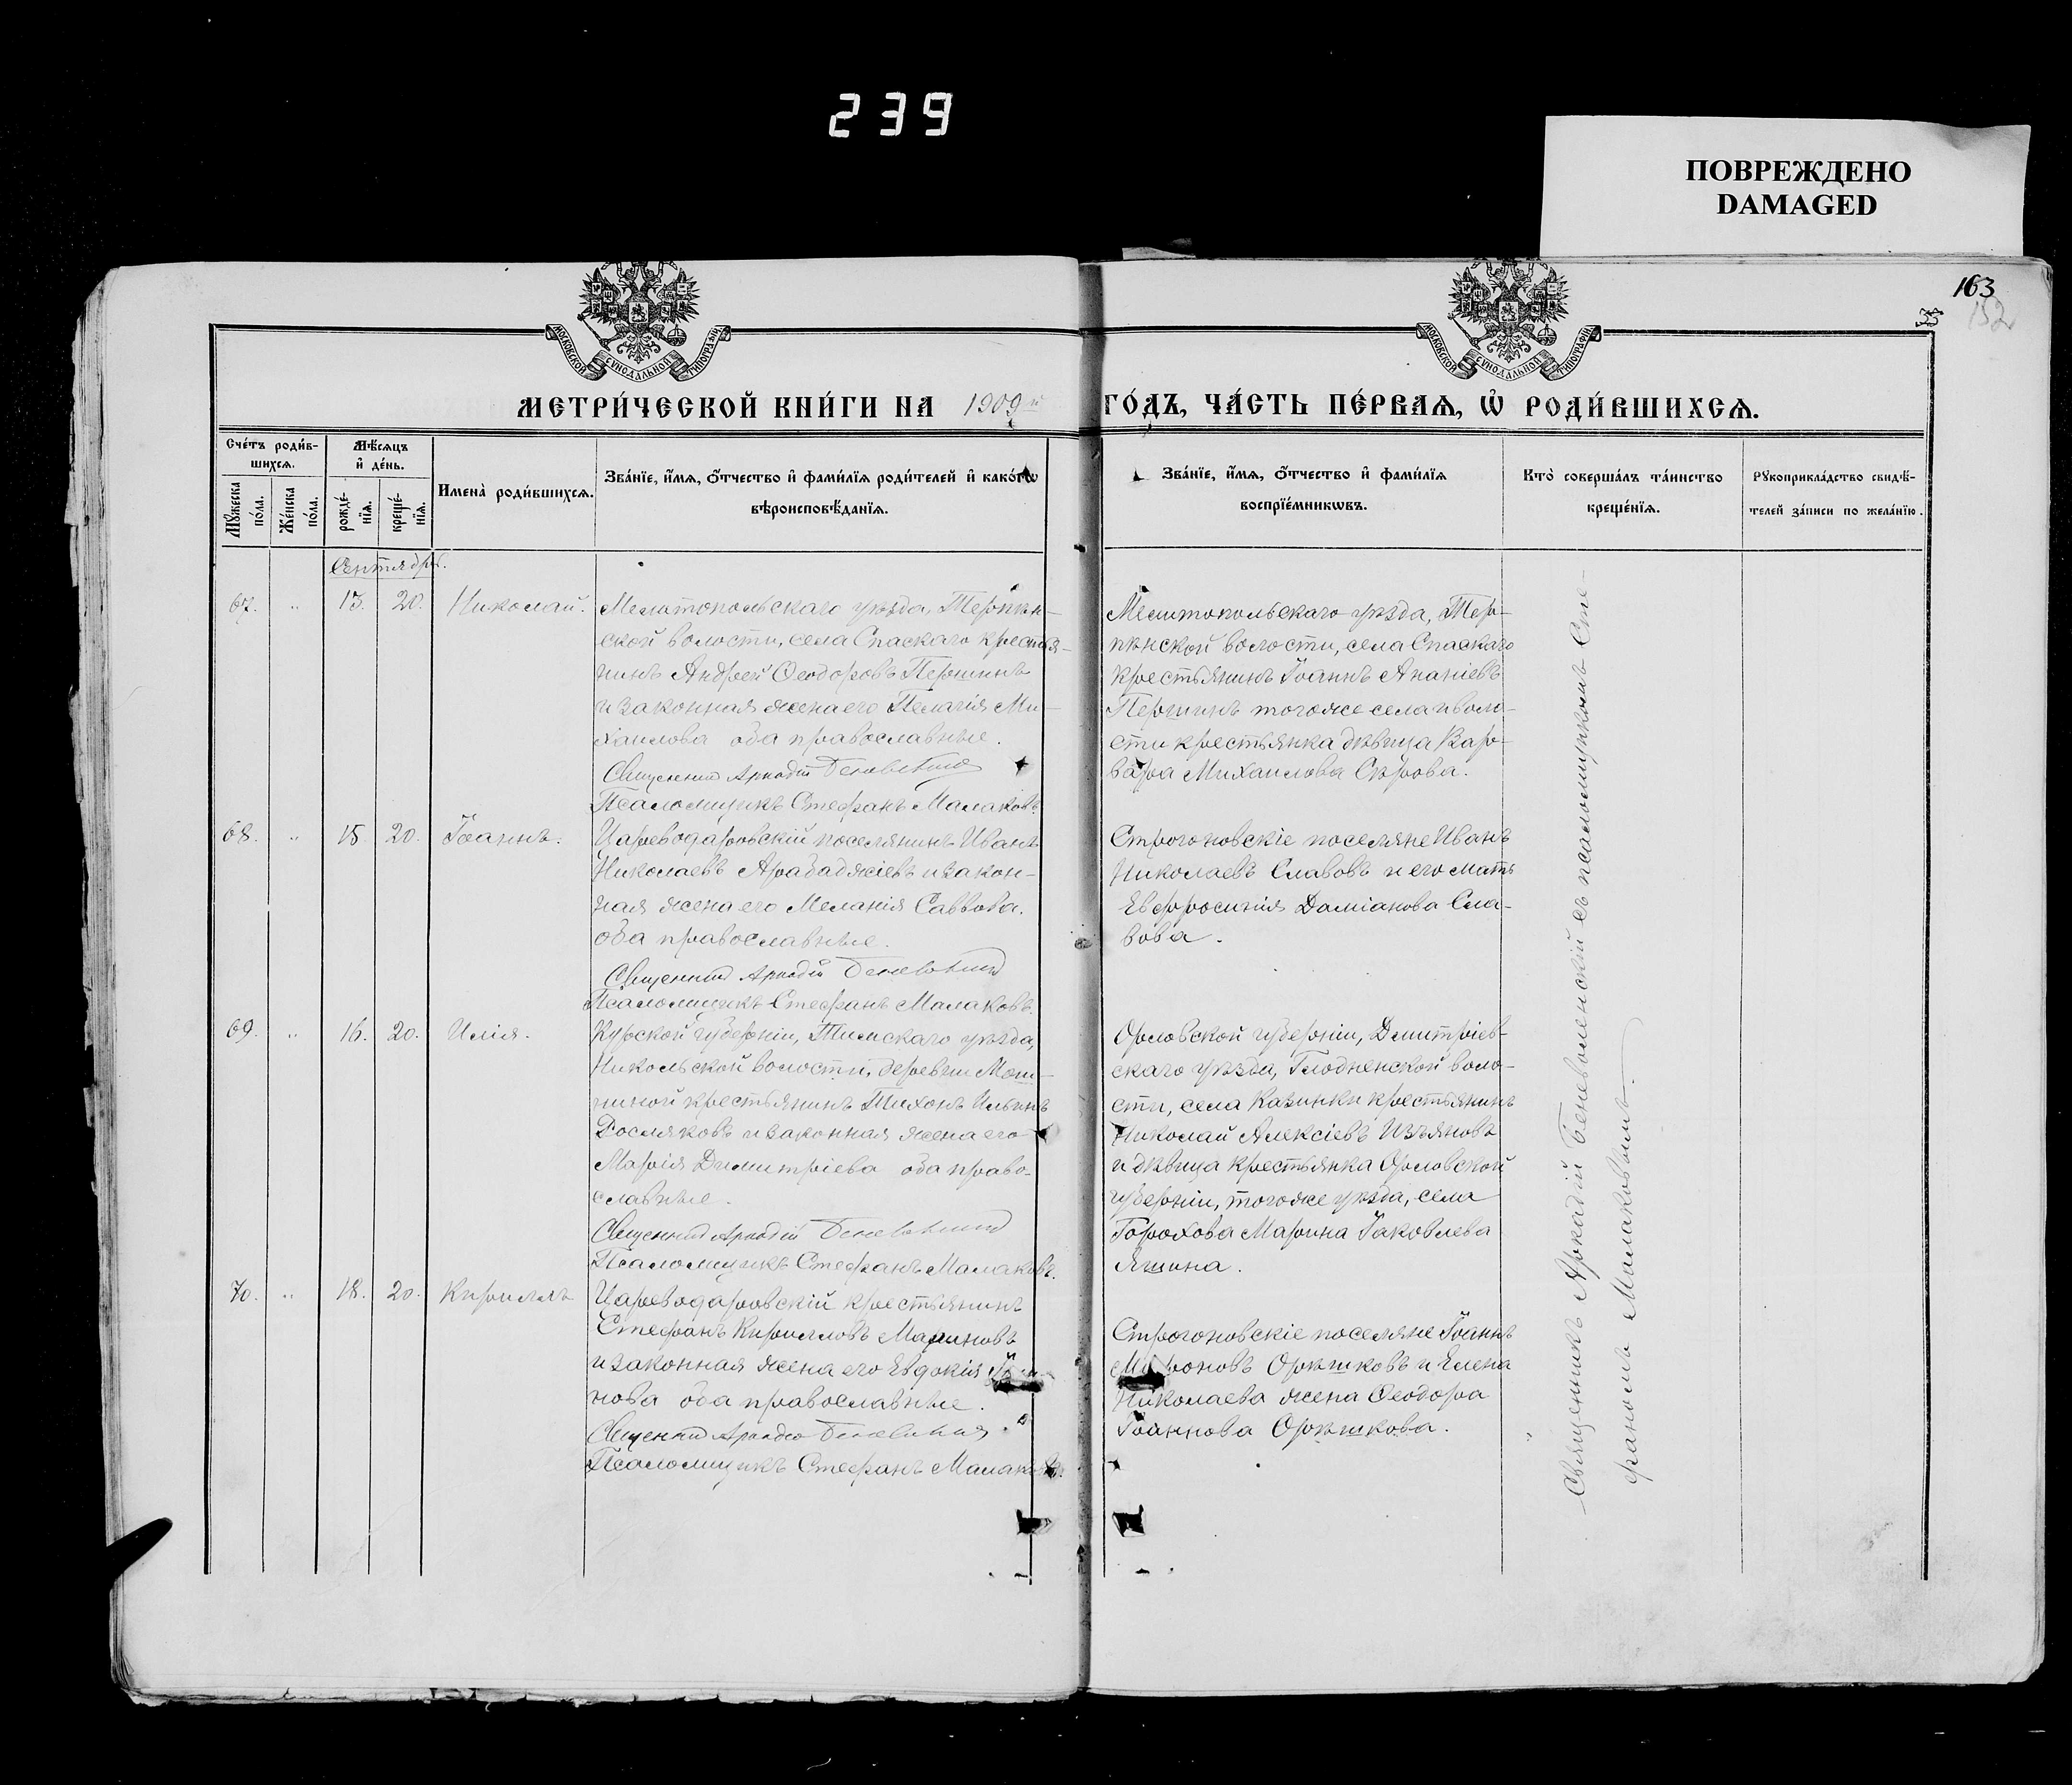 239
ПОВРЕЖДЕНО
DAMAGED
163
152
35
МОСКОВСКОЙ СУНОДАЛЬНОЙ ТИПОГРАФІИ
МОСКОВСКОЙ СУНОДАЛЬНОЙ ТИПОГРАФІИ
МЕТРИ́ЧЕСКОЙ КНИ́ГИ НА 1909й ГО́ДЪ, ЧА́СТЬ ПЕ́РВАѦ, Ѽ РОДИ́ВШИХСѦ.
Сче́тъ роди́в-
шихсѧ.
Мꙋ́жеска по́ла.
Же́нска по́ла.
Мѣ́сѧцъ
и҆ де́нь.
рожде́-
нїѧ.
креще́-
нїѧ.
Имена̀ роди́вшихсѧ.
Зва́нїе, и҆́мѧ, ѻ҆́тчество и҆ фами́лїѧ роди́телей и҆ како́гѡ
вѣроисповѣ́данїѧ.
Зва́нїе, и҆́мѧ, ѻ҆́тчество и҆ фами́лїѧ
воспрїе́мникѡвъ.
Кто̀ соверша́лъ та́инство
креще́нїѧ.
Рꙋкоприкла́дство свидѣ́-
телей за́писи по жела́нїю.
Сентябрь.
67. " 15. 20. Николай.
Мелитопольскаго уѣзда, Терпѣн-
ской волости, села Спаскаго крестья-
нинъ Андрей Ѳеодоровъ Першинъ
и законная жена его Пелагія Ми-
хаилова оба православные.
Священникъ Аркадій Беневоленскій
Псаломщикъ Стефанъ Малаковъ.
Мелитопольскаго уѣзда, Тер-
пѣнской волости, села Спаскаго
крестьянинъ Іоаннъ Ананіевъ
Першинъ тогоже села и воло-
сти крестьянка дѣвица Вар-
вара Михаилова Сѣрова.
68. " 15. 20. Іоаннъ.
Цареводаровскій поселянинъ Иванъ
Николаевъ Арабаджіевъ и закон-
ная жена его Меланія Саввова.
оба православные.
Священникъ Аркадій Беневоленскій
Псаломщикъ Стефанъ Малаковъ.
Строгоновскіе поселяне Иванъ
Николаевъ Славовъ и его мать
Евфросинія Даміанова Сла-
вова.
69. " 16. 20. Илія.
Курской губерніи, Тимскаго уѣзда,
Никольской волости, деревни Мош-
ниной крестьянинъ Тихонъ Ильинъ
Росляковъ и законная жена его
Марія Димитріева оба право-
славные.
Священникъ Аркадій Беневоленскій
Псаломщикъ Стефанъ Малаковъ.
Орловской губерніи, Дмитріев-
скаго уѣзда, Глодненской воло-
сти, села Казинки крестьянинъ
Николай Алексіевъ Изъяновъ
и дѣвица крестьянка Орловской
губерніи, тогоже уѣзда, села
Горохова Марина Іаковлева
Яшина.
70. " 18. 20. Кириллъ
Цареводаровскій крестьянинъ
Стефанъ Кирилловъ Мариновъ
и законная жена его Евдокія
нова оба православные.
Священникъ Аркадій Беневоленскій
Псаломщикъ Стефанъ Малаковъ.
Строгоновскіе поселяне Іоаннъ
Мироновъ Орѣшковъ и Елена
Николаева жена Ѳеодора
Іоаннова Орѣшкова.
Священникъ Аркадій Беневоленскій съ псаломщикомъ Сте-
фаномъ Малаковымъ.